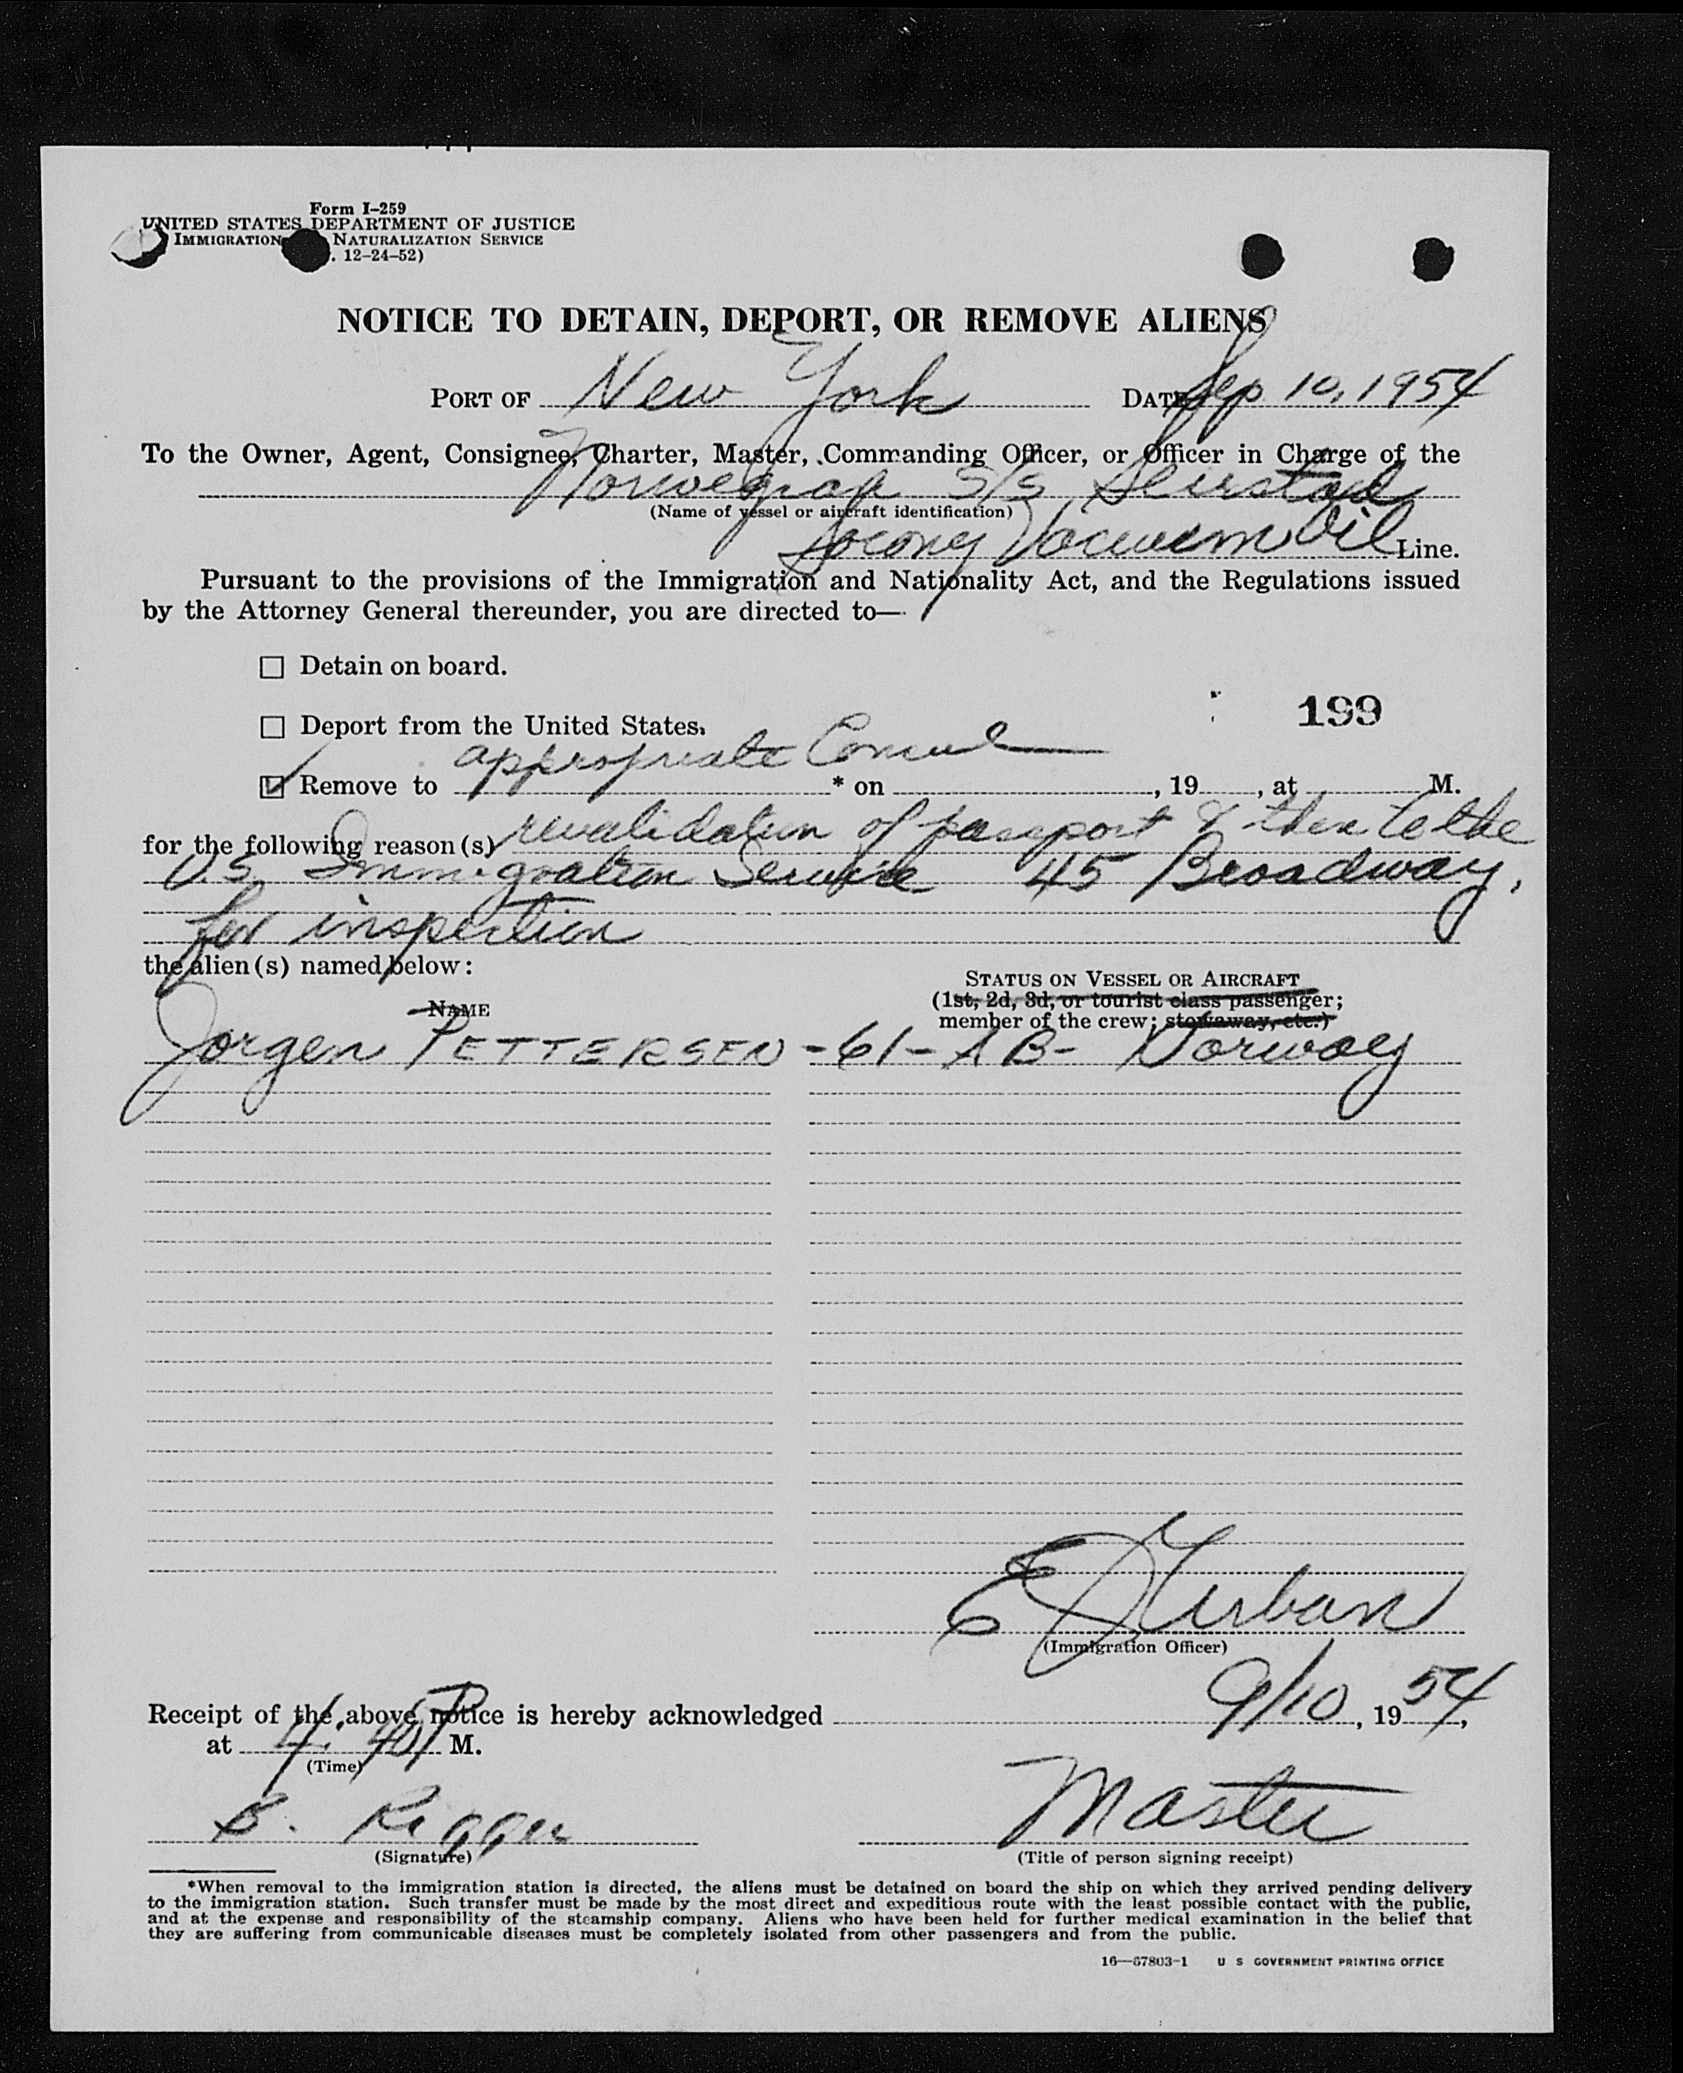 Form I-259
UNITED STATES DEPARTMENT OF JUSTICE
IMMIGRATION NATURALIZATION SERVICE
12-24-52)
NOTICE TO DETAIN, DEPORT, OR REMOVE ALIENS
PORT OF New York DATE Sep 10, 1954
To the Owner, Agent, Consignee, Charter, Master, Commanding Officer, or Officer in Charge of the
Norwegian S/S
(Name of vessel or aircraft identification)
Socony Vacuum Oil Line.
Pursuant to the provisions of the Immigration and Nationality Act, and the Regulations issued
by the Attorney General thereunder, you are directed to—
☐ Detain on board.
199
☐ Deport from the United States.
☑ Remove to appropriate Consul * on , 19 , at M.
for the following reason(s) revalidation of passport & then to the
U.S. Immigration Service 45 Broadway,
for inspection
the alien(s) named below:
NAME
STATUS ON VESSEL OR AIRCRAFT
(1st, 2d, 3d, or tourist class passenger;
member of the crew; stowaway, etc.)
Jorgen PETTERSEN - 61 - AB - Norway
E J Urban
(Immigration Officer)
Receipt of the above notice is hereby acknowledged 9/10, 1954,
at 4:40 P M.
(Time)
B. Rigger Master
(Signature) (Title of person signing receipt)
*When removal to the immigration station is directed, the aliens must be detained on board the ship on which they arrived pending delivery
to the immigration station. Such transfer must be made by the most direct and expeditious route with the least possible contact with the public,
and at the expense and responsibility of the steamship company. Aliens who have been held for further medical examination in the belief that
they are suffering from communicable diseases must be completely isolated from other passengers and from the public.
16—67803-1 U S GOVERNMENT PRINTING OFFICE